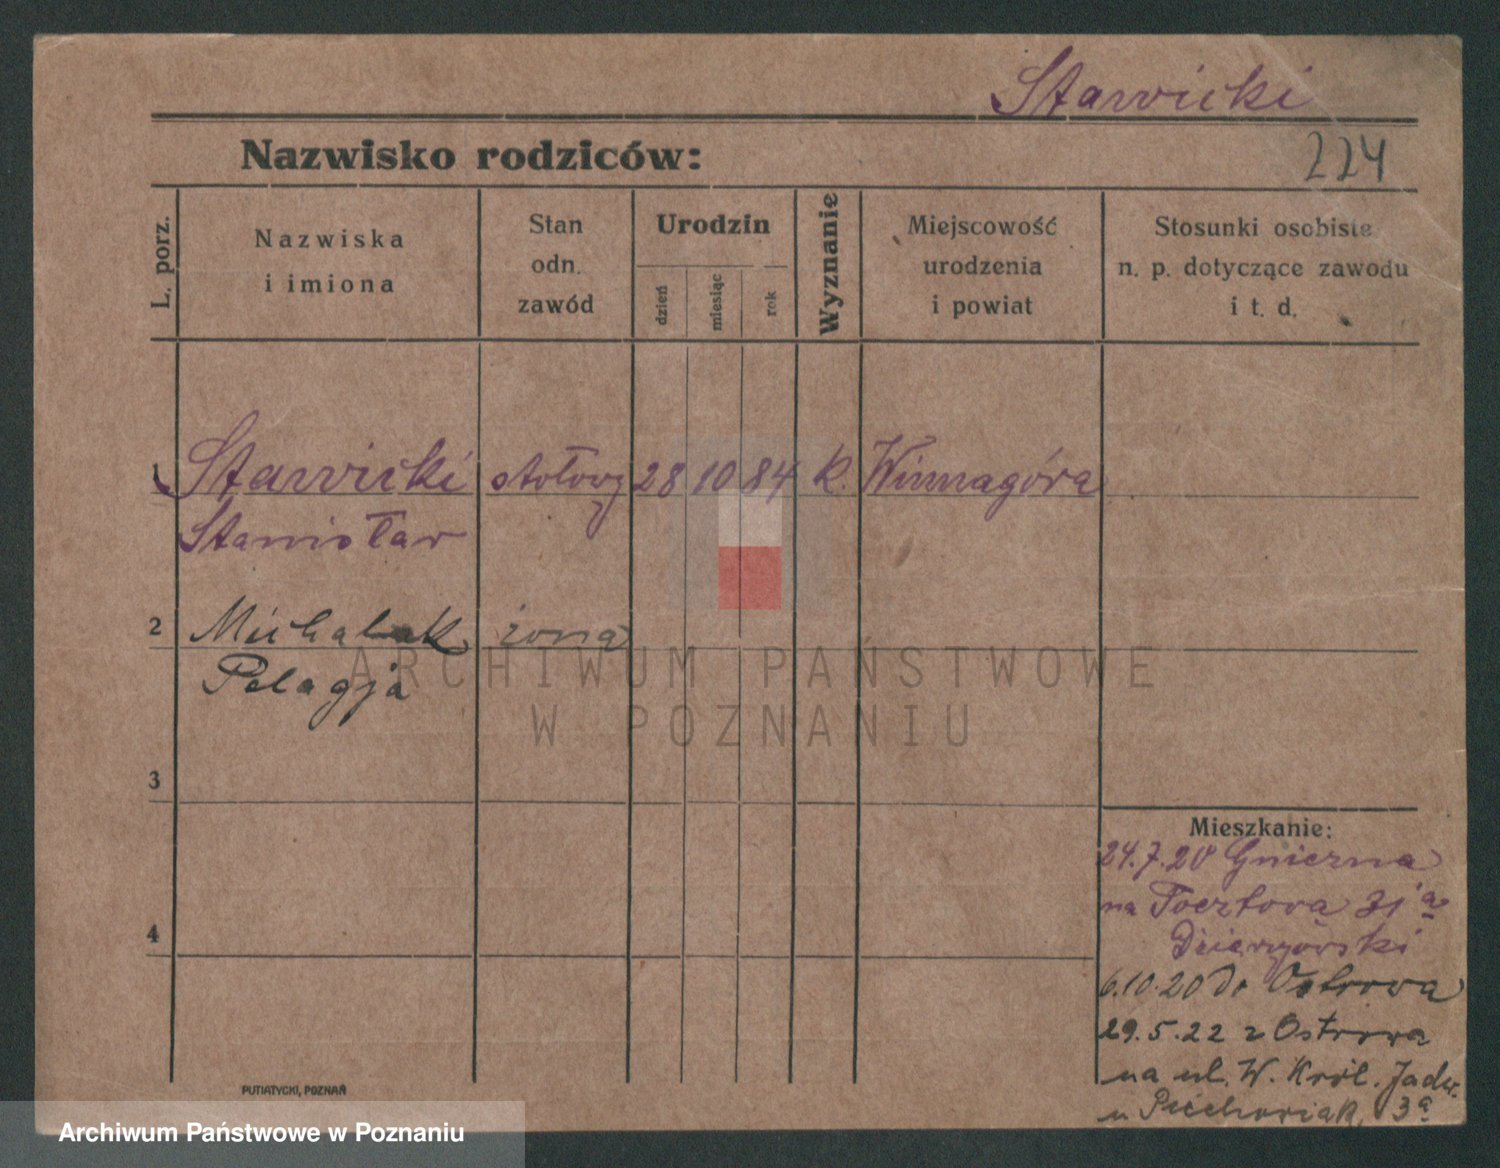 Stawicki
Nazwisko rodziców:
224
L. porz.
Nazwiska
i imiona
Stan
odn.
zawód
Urodzin
dzień
miesiąc
rok
Wyznanie
Miejscowość
urodzenia
i powiat
Stosunki osobiste
n. p. dotyczące zawodu
i t. d.
1 Stawicki stołowy 28 10 84 k. Winnagóra
Stanisław
2 Michalak żona
Pelagja
3
4
Mieszkanie:
24.7.20 Gniezna
na Pocztowa 31 a
6.10.20 do Ostrowa
29.5.22 z Ostrowa
na ul. W. Król. Jadw.
u 3a
PUTIATYCKI, POZNAŃ
ARCHIWUM PAŃSTWOWE
W POZNANIU
Archiwum Państwowe w Poznaniu